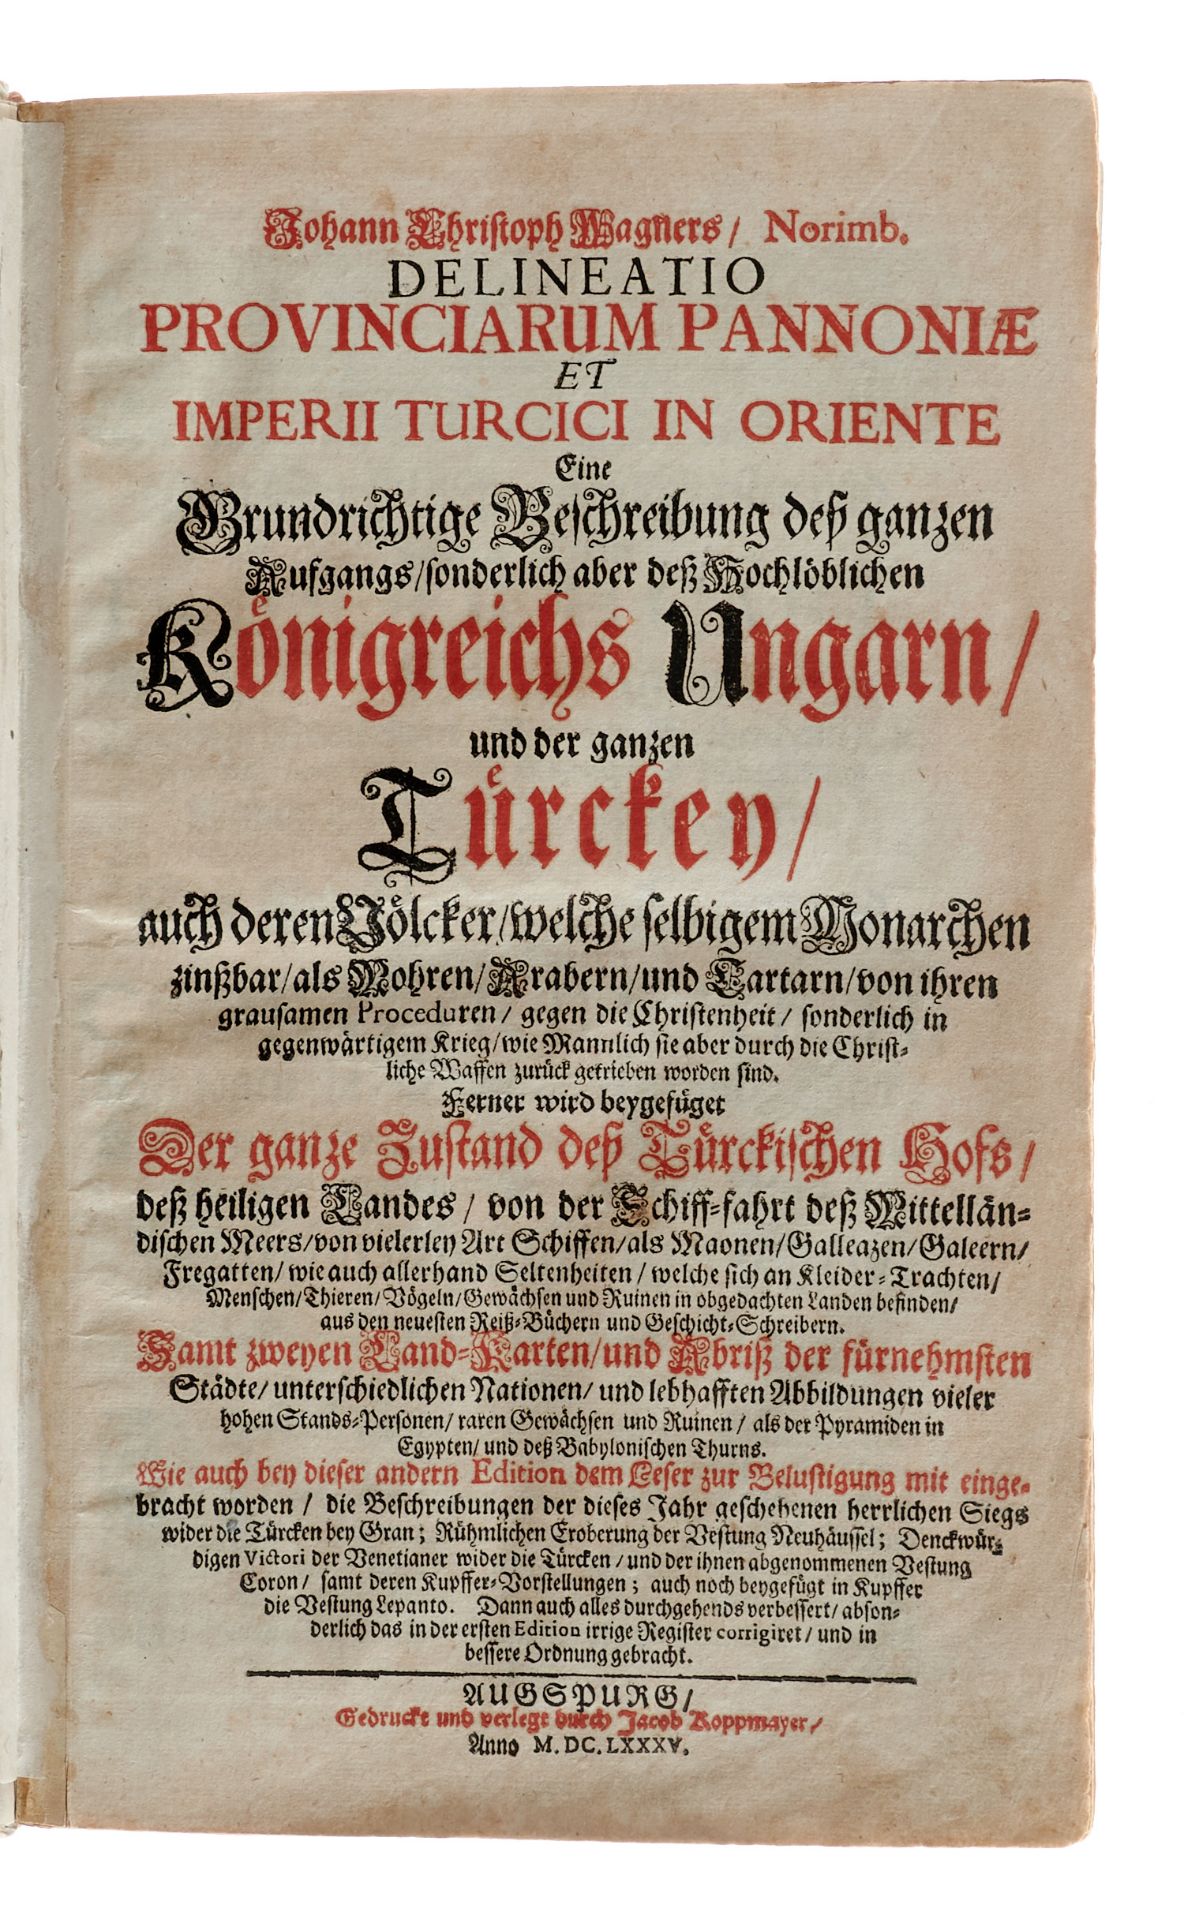 Johann Christoph Wagners / Norimb.
DELINEATIO
PROVINCIARUM PANNONIÆ
ET
IMPERII TURCICI IN ORIENTE
Eine
Grundrichtige Beschreibung deß ganzen
Aufgangs / sonderlich aber deß Hochlöblichen
Königreichs Ungarn /
und der ganzen
Türckey /
auch deren Völcker / welche selbigem Monarchen
zinßbar / als Mohren / Arabern / und Tartarn / von ihren
grausamen Proceduren / gegen die Christenheit / sonderlich in
gegenwärtigem Krieg / wie Mannlich sie aber durch die Christ-
liche Waffen zurück getrieben worden sind.
Ferner wird beygefüget
Der ganze Zustand deß Türckischen Hofs /
deß heiligen Landes / von der Schiff-fahrt deß Mittellän-
dischen Meers / von vielerley Art Schiffen / als Maonen / Galleazen / Galeern /
Fregatten / wie auch allerhand Seltenheiten / welche sich an Kleider-Trachten /
Menschen / Thieren / Vögeln / Gewächsen und Ruinen in obgedachten Landen befinden /
aus den neuesten Reiß-Büchern und Geschicht-Schreibern.
Samt zweyen Land-Karten / und Abriß der fürnehmsten
Städte / unterschiedlichen Nationen / und lebhafften Abbildungen vieler
hohen Stands-Personen / raren Gewächsen und Ruinen / als der Pyramiden in
Egypten / und deß Babylonischen Thurns.
Wie auch bey dieser andern Edition dem Leser zur Belustigung mit einge-
bracht worden / die Beschreibungen der dieses Jahr geschehenen herrlichen Siegs
wider die Türcken bey Gran; Rühmlichen Eroberung der Vestung Neuhäussel; Denckwür-
digen Victori der Venetianer wider die Türcken / und der ihnen abgenommenen Vestung
Coron / samt deren Kupffer-Vorstellungen; auch noch beygefügt in Kupffer
die Vestung Lepanto. Dann auch alles durchgehends verbessert / abson-
derlich das in der ersten Edition irrige Register corrigiret / und in
bessere Ordnung gebracht.
AUGSPURG /
Gedruckt und verlegt durch Jacob Koppmayer /
Anno M. DC. LXXXV.